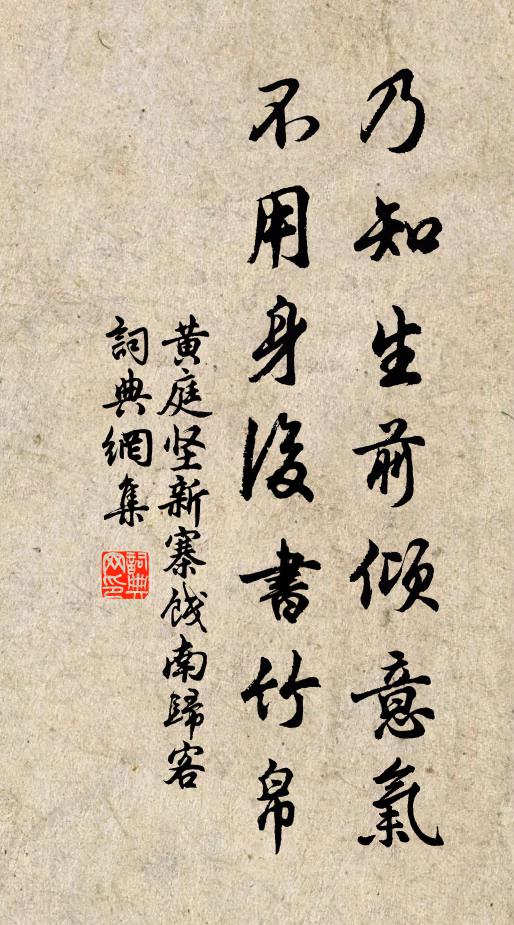 乃知生前倾意氣
不用身後書竹帛
黄庭坚新寨饯南歸客
詞典網集
詞典网印